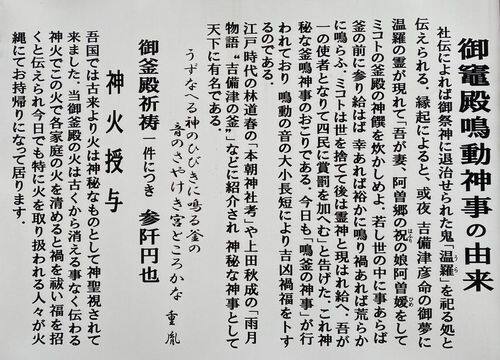 御竈殿鳴動神事の由来
社伝によれば御祭神に退治せられた鬼「温羅」を祀る処と
伝えられる。縁起によると、或夜 吉備津彦命の御夢に
温羅の霊が現れて「吾が妻、阿曽郷の祝の娘阿曽媛をして
ミコトの釜殿の神饌を炊かしめよ、若し世の中に事あらば
釜の前に参り給はば 幸あれば裕かに鳴り禍あれば荒らか
に鳴らふ、ミコトは世を捨てて後は霊神と現はれ給へ、吾が
一の使者となりて四民に賞罰を加へむ」と告げた。これ神
秘な釜鳴神事のおこりである。今日も「鳴釜の神事」が行
われており 鳴動の音の大小長短により吉凶禍福をトす
るのである。
江戸時代の林道春の「本朝神社考」や上田秋成の「雨月
物語 "吉備津の釜"」などに紹介され 神秘な神事として
天下に有名である。
うずなへる神のひびきに鳴る釜の
音のさやけき宮どころかな 重胤
御釜殿祈祷 一件につき 参阡円也
神火授与
吾国では古来より火は神秘なものとして神聖視されて
来ました。当御釜殿の火は古くから消える事なく伝わる
神火でこの火で各家庭の火を清めると禍を祓い福を招
くと伝えられ今日でも特に火を取り扱われる人々が火
縄にてお持帰りになって居ります。